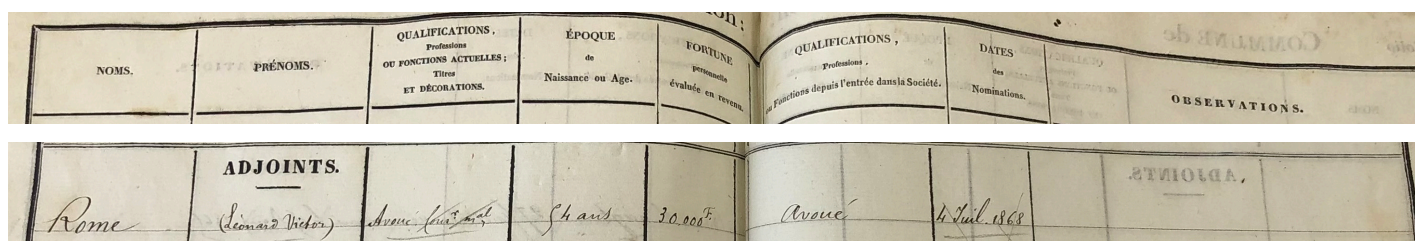 NOMS.
PRÉNOMS.
QUALIFICATIONS,
Professions
OU FONCTIONS ACTUELLES;
Titres
ET DÉCORATIONS.
ÉPOQUE
de
Naissance ou Age.
FORTUNE
personnelle
évaluée en revenu.
QUALIFICATIONS,
Professions,
ou Fonctions depuis l'entrée dans la Société.
DATES
des
Nominations.
OBSERVATIONS.
ADJOINTS.
Rome
(Léonard Victor)
Avoué
54 ans
30.000 F.
avoué
4 Juil. 1868